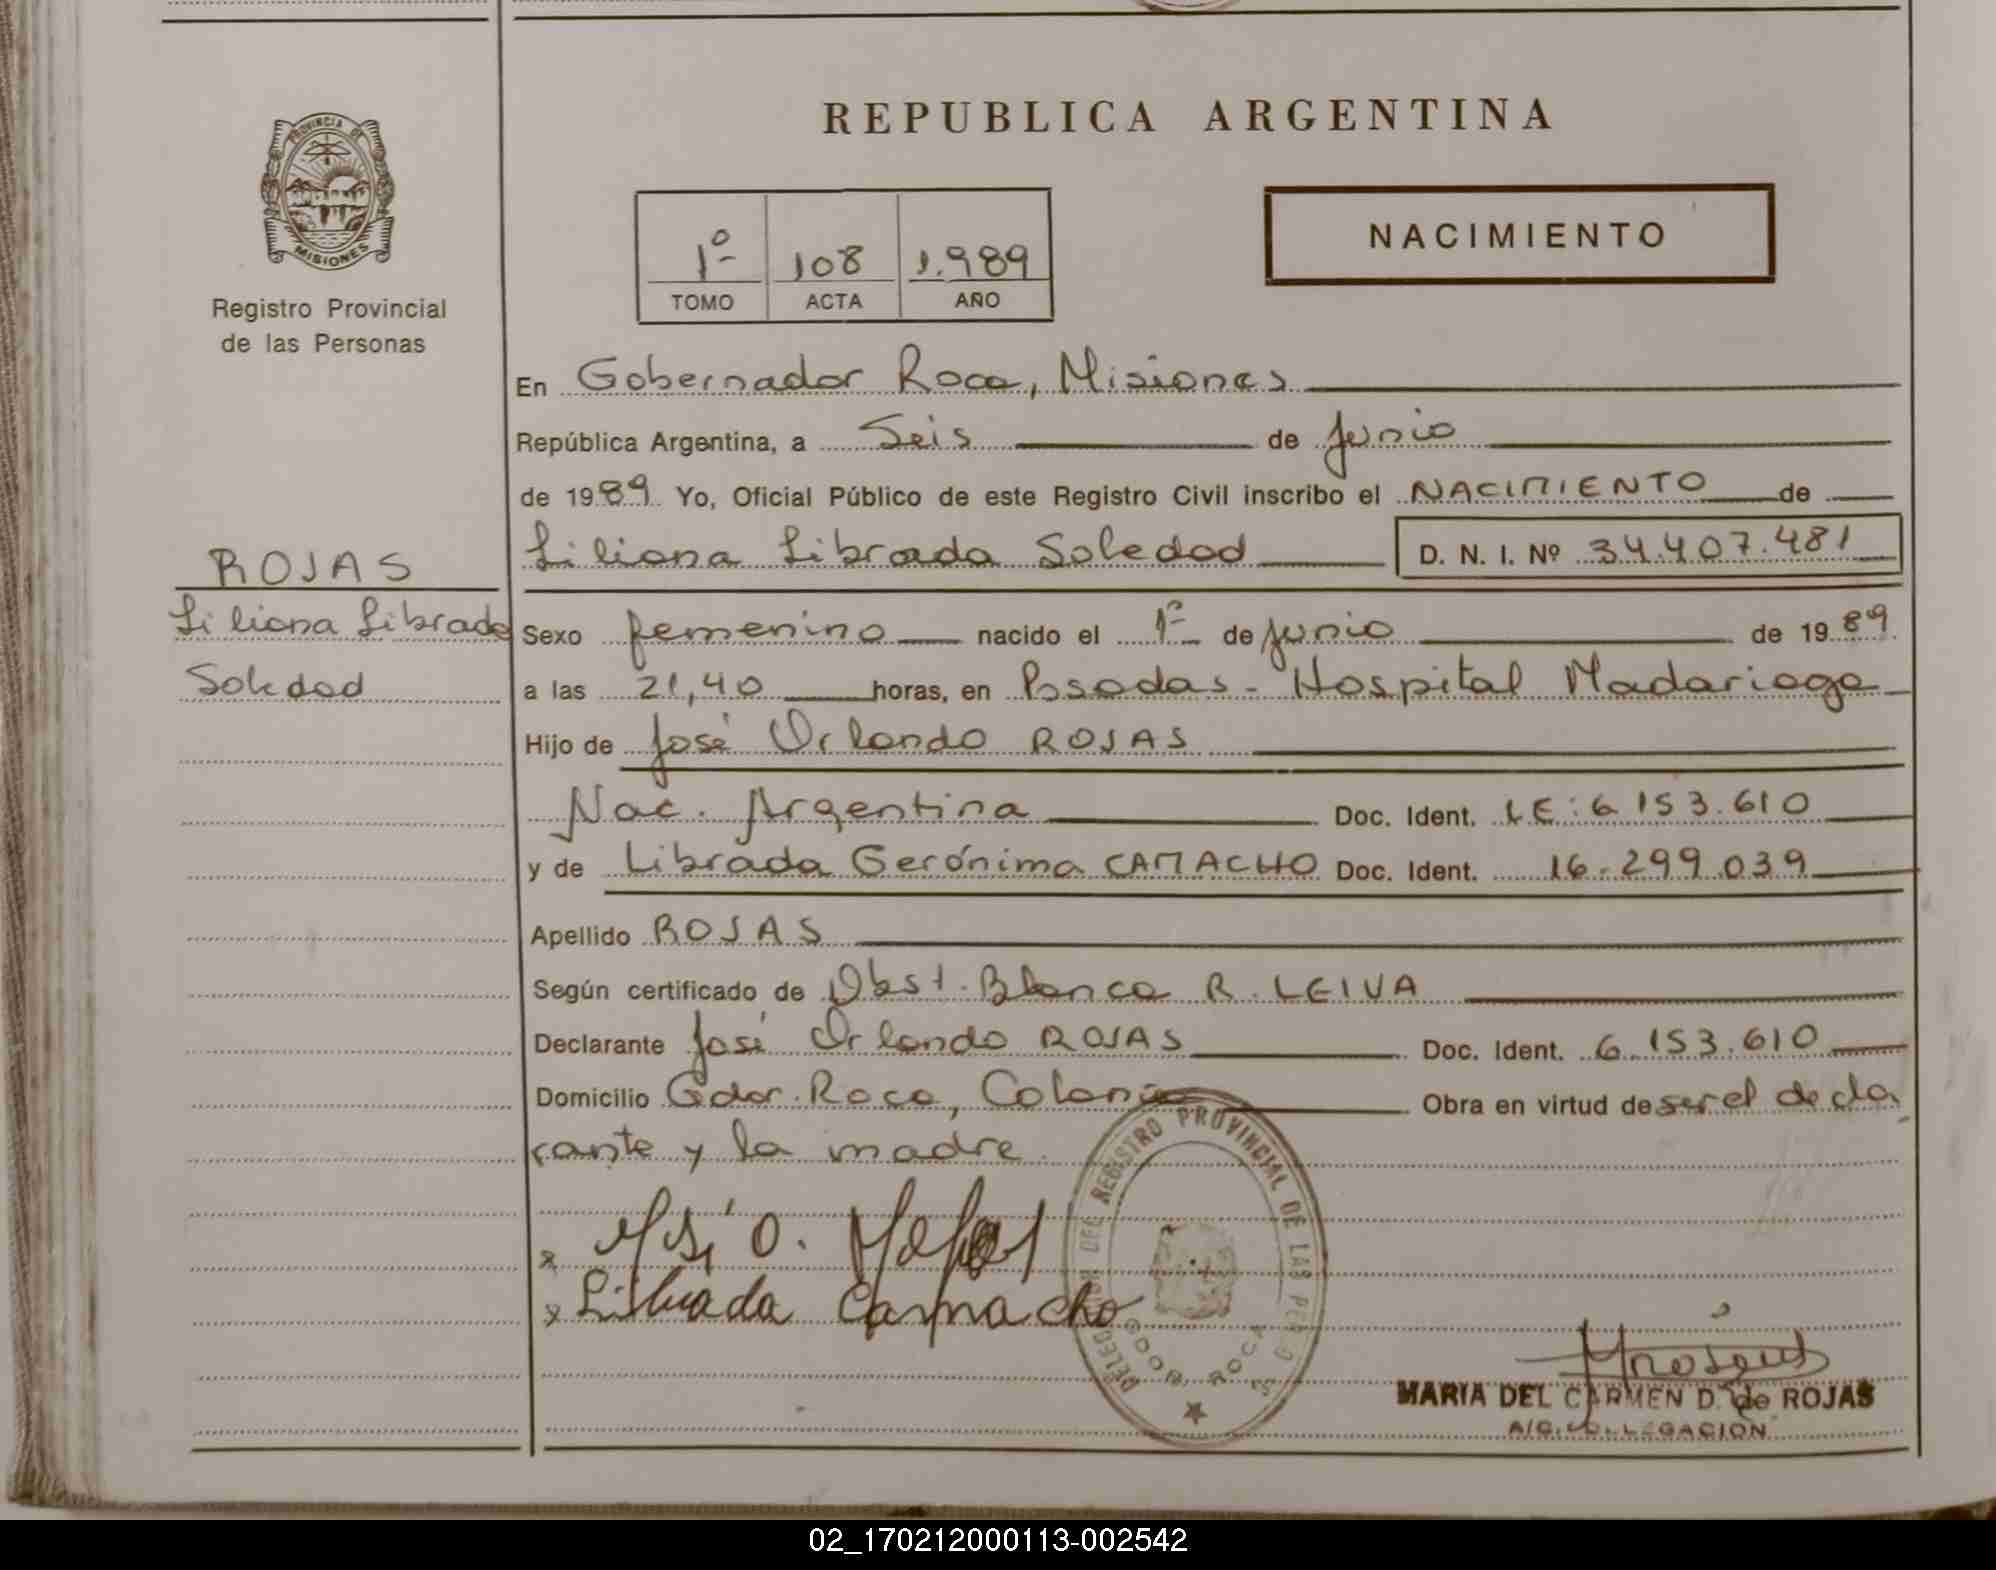 REPUBLICA ARGENTINA
PROVINCIA DE
MISIONES
Registro Provincial
de las Personas
1º 108 1.989
TOMO ACTA AÑO
NACIMIENTO
En Gobernador Roca, Misiones
República Argentina, a Seis de junio
de 1989 Yo, Oficial Público de este Registro Civil inscribo el NACIMIENTO de
Liliana Librada Soledad D. N. I. Nº 34.407.481
ROJAS
Liliana Librada
Soledad
Sexo femenino nacido el 1º de junio de 1989
a las 21,40 horas, en Posadas - Hospital Madariaga
Hijo de José Orlando ROJAS
Nac. Argentina Doc. Ident. LE: 6.153.610
y de Librada Gerónima CAMACHO Doc. Ident. 16.299.039
Apellido ROJAS
Según certificado de Obst. Blanca R. LEIVA
Declarante José Orlando ROJAS Doc. Ident. 6.153.610
Domicilio Gdor. Roca, Colonia Obra en virtud de ser el decla
rante y la madre.
x José O. Rojas
x Librada Camacho
DELEGACION DEL REGISTRO PROVINCIAL DE LAS
GDOR. ROCA
MARIA DEL CARMEN D. de ROJAS
A/C. DELEGACION
02_170212000113-002542